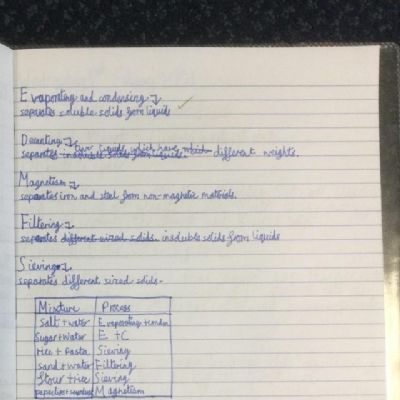 Evaporating and condensing
separates soluble solids from liquids
Decanting
two liquids which have which
separates insoluble solids from liquids. different weights.
Magnetism
separates iron and steel from non-magnetic materials.
Filtering
separates different sized solids. insoluble solids from liquids
Sieving
separates different sized solids.
Mixture Process
Salt + water Evaporating +
Sugar + Water E + C
rice + Pasta Sieving
sand + water Filtering
flour + rice Sieving
paperclips + Magnetism